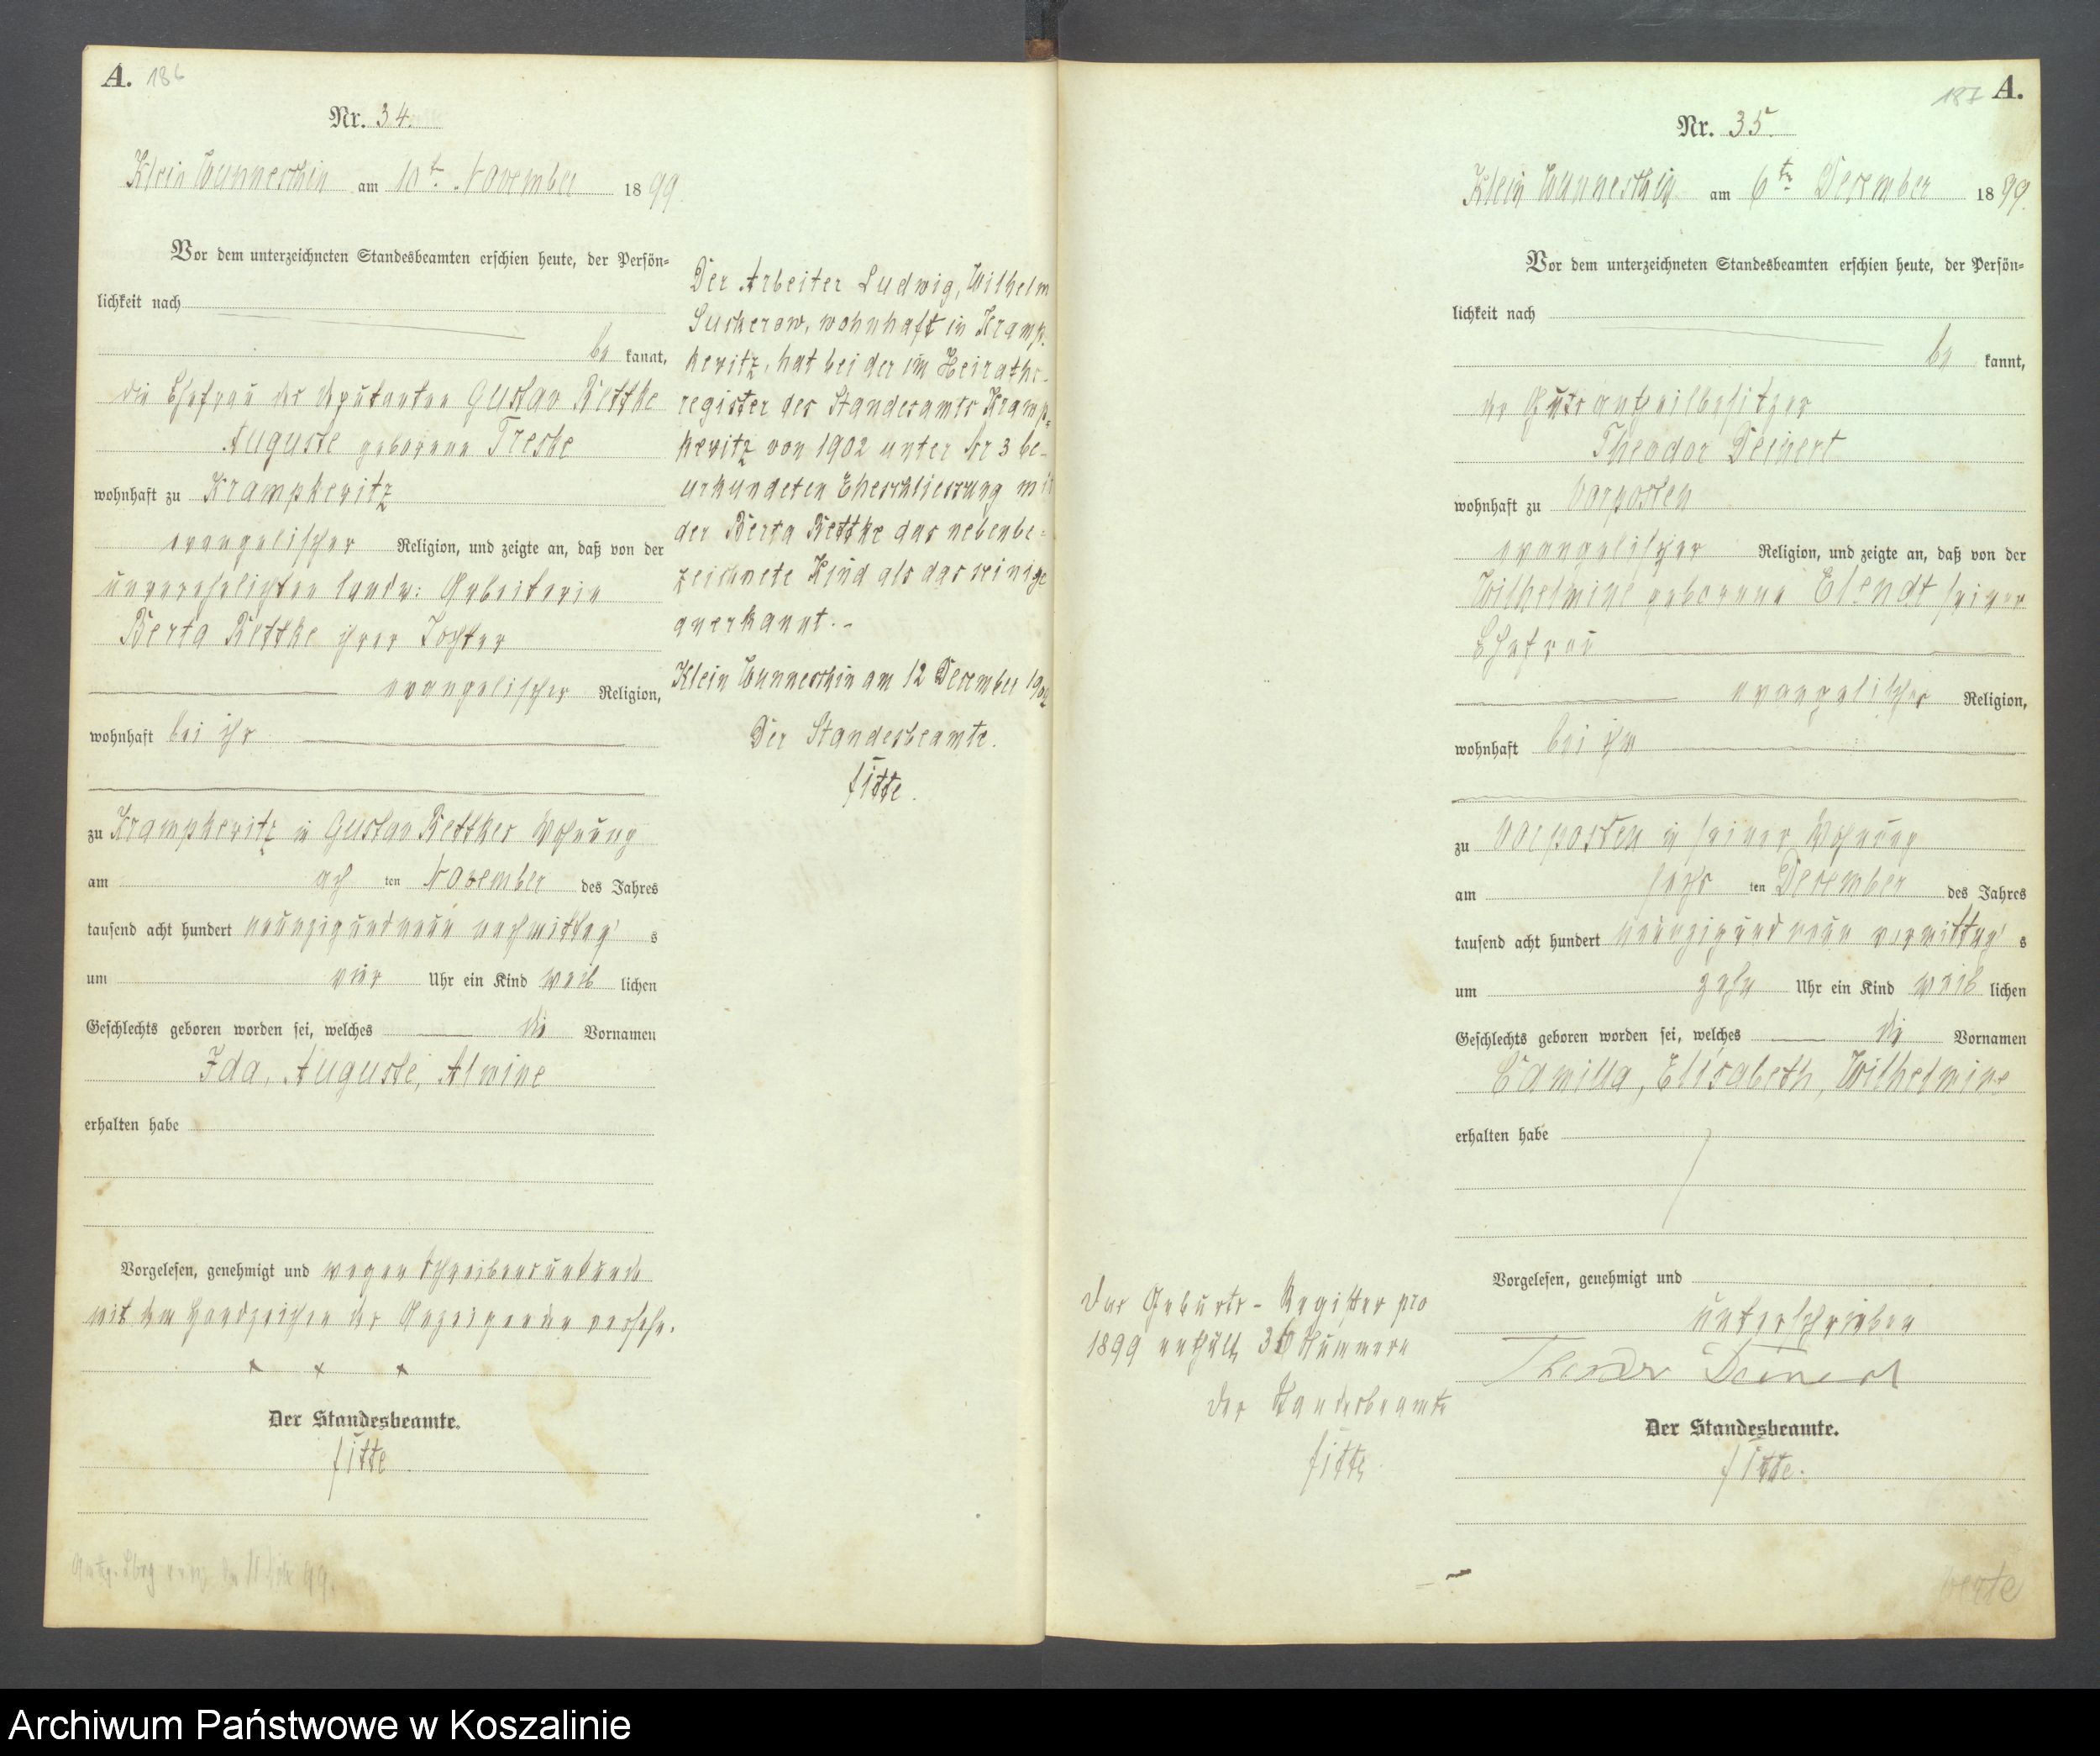 A. 186
Nr. 34.
Klein Wunneschin am 10t. November 1899
Vor dem unterzeichneten Standesbeamten erschien heute, der Persön-
lichkeit nach
be kannt,
die Ehefrau des Deputanten Gustav Rettke
Auguste geborene Treske
wohnhaft zu Krampkewitz
evangelischer Religion, und zeigte an, daß von der
unverehelichten landw: Arbeiterin
Berta Rettke ihrer Tochter
evangelischer Religion,
wohnhaft bei ihr
zu Krampkewitz in Gustav Rettkes Wohnung
am ach ten November des Jahres
tausend acht hundert neunzigundneun nachmittag s
um vier Uhr ein Kind weib lichen
Geschlechts geboren worden sei, welches die Vornamen
Ida, Auguste, Alwine
erhalten habe
Vorgelesen, genehmigt und wegen Schreibensunkunde
mit dem Handzeichen der Anzeigenden versehn.
x x x
Der Standesbeamte.
Fitte
Der Arbeiter Ludwig, Wilhelm
Suckerow, wohnhaft in Kramp-
kewitz, hat bei der im Heiraths-
register des Standesamts Kramp-
kewitz von 1902 unter Nr 3 be-
urkundeten Eheschliessung mit
der Berta Rettke das nebenbe-
zeichnete Kind als das seinige
anerkannt.-
Klein Wunneschin am 12 December 1902
Der Standesbeamte.
Fitte.
187 A.
Nr. 35.
Klein Wunneschin am 6ten December 1899.
Vor dem unterzeichneten Standesbeamten erschien heute, der Persön-
lichkeit nach
be kannt,
der Gutsantheilbesitzer
Theodor Deinert
wohnhaft zu Vorposten
evangelischer Religion, und zeigte an, daß von der
Wilhelmine geborene Elendt seiner
Ehefrau
evangelischer Religion,
wohnhaft bei ihm
zu Vorposten in seiner Wohnung
am sechs ten December des Jahres
tausend acht hundert neunzigundneun vormittag s
um zehn Uhr ein Kind weib lichen
Geschlechts geboren worden sei, welches die Vornamen
Camilla, Elisabeth, Wilhelmine
erhalten habe
Vorgelesen, genehmigt und
unterschrieben
Theodor Deinert
Der Standesbeamte.
Fitte.
Das Geburts-Register pro
1899 enthält 36 Nummern
Der Standesbeamte
Fitte
Archiwum Państwowe w Koszalinie